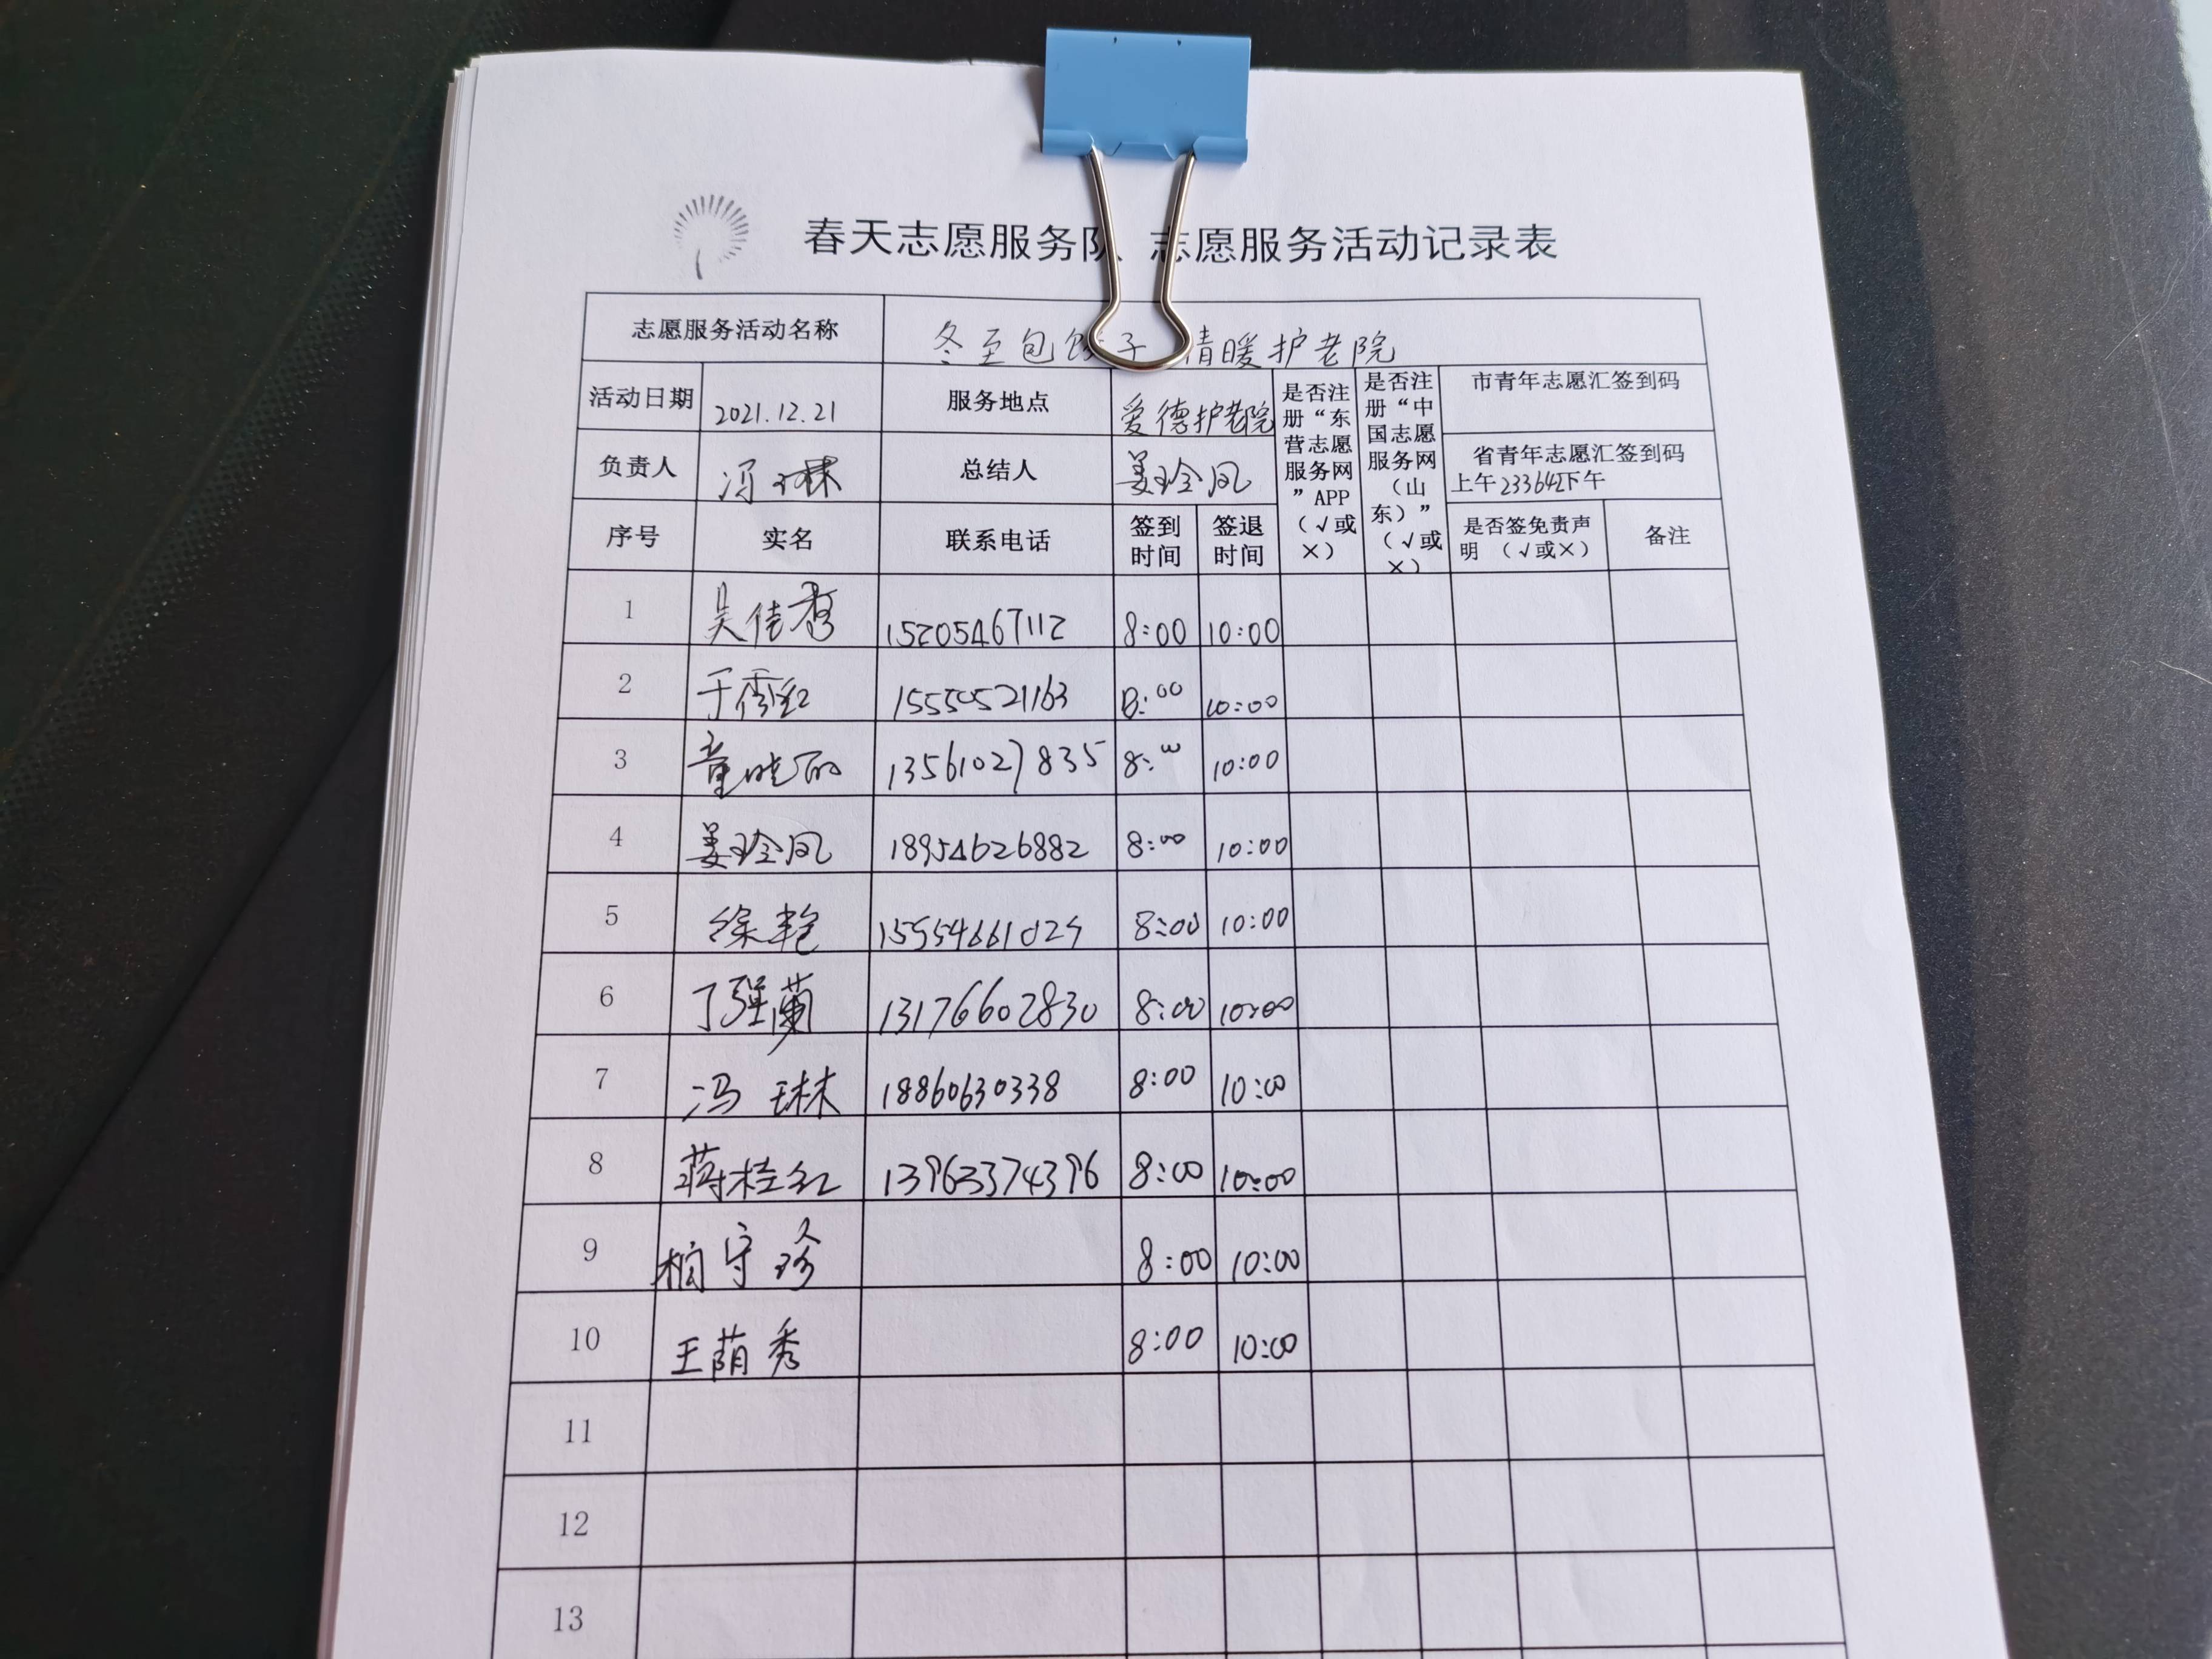 春天志愿服务队 志愿服务活动记录表
志愿服务活动名称 冬至包饺子 情暖护老院
活动日期 2021.12.21 服务地点 爱德护老院 是否注册“东营志愿服务网”APP（√或×） 是否注册“中国志愿服务网（山东）”（√或×） 市青年志愿汇签到码
负责人 冯琳 总结人 姜玲凤 省青年志愿汇签到码 上午233642下午
序号 实名 联系电话 签到时间 签退时间 是否签免责声明（√或×） 备注
1 吴佳秀 15205467112 8:00 10:00
2 于秀红 15550521163 8:00 10:00
3 童晓丽 13561027835 8:00 10:00
4 姜玲凤 18954626882 8:00 10:00
5 徐艳 8:00 10:00
6 丁强兰 13176602830 8:00 10:00
7 冯琳 18860630338 8:00 10:00
8 蒋桂红 13963374396 8:00 10:00
9 柏守珍 8:00 10:00
10 王荫秀 8:00 10:00
11
12
13